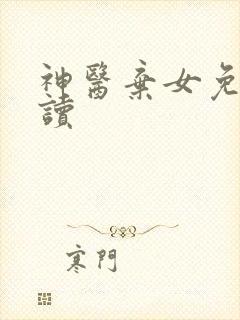 神醫棄女免
讀
寒門